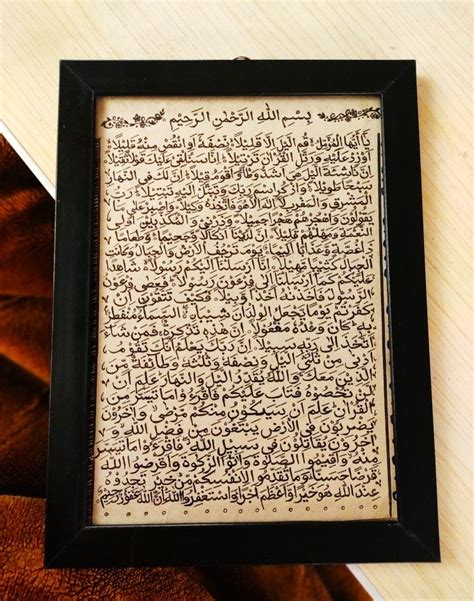 بِسْمِ اللهِ الرَّحْمٰنِ الرَّحِيْمِ
يَا أَيُّهَا الْمُزَّمِّلُ قُمِ الَّيْلَ إِلَّا قَلِيْلًا نِصْفَهُ أَوِ انْقُصْ مِنْهُ قَلِيْلًا
أَوْ زِدْ عَلَيْهِ وَرَتِّلِ الْقُرْآنَ تَرْتِيْلًا إِنَّا سَنُلْقِي عَلَيْكَ قَوْلًا ثَقِيْلًا
إِنَّ نَاشِئَةَ الَّيْلِ هِيَ أَشَدُّ وَطْأً وَأَقْوَمُ قِيْلًا إِنَّ لَكَ فِي النَّهَارِ
سَبْحًا طَوِيْلًا وَاذْكُرِ اسْمَ رَبِّكَ وَتَبَتَّلْ إِلَيْهِ تَبْتِيْلًا رَبُّ
الْمَشْرِقِ وَالْمَغْرِبِ لَا إِلٰهَ إِلَّا هُوَ فَاتَّخِذْهُ وَكِيْلًا وَاصْبِرْ عَلٰى مَا
يَقُوْلُوْنَ وَاهْجُرْهُمْ هَجْرًا جَمِيْلًا وَذَرْنِي وَالْمُكَذِّبِيْنَ أُولِي
النَّعْمَةِ وَمَهِّلْهُمْ قَلِيْلًا إِنَّ لَدَيْنَا أَنْكَالًا وَجَحِيْمًا وَطَعَامًا
ذَا غُصَّةٍ وَعَذَابًا أَلِيْمًا يَوْمَ تَرْجُفُ الْأَرْضُ وَالْجِبَالُ وَكَانَتِ
الْجِبَالُ كَثِيْبًا مَهِيْلًا إِنَّا أَرْسَلْنَا إِلَيْكُمْ رَسُوْلًا شَاهِدًا
عَلَيْكُمْ كَمَا أَرْسَلْنَا إِلٰى فِرْعَوْنَ رَسُوْلًا فَعَصٰى فِرْعَوْنُ
الرَّسُوْلَ فَأَخَذْنَاهُ أَخْذًا وَبِيْلًا فَكَيْفَ تَتَّقُوْنَ إِنْ
كَفَرْتُمْ يَوْمًا يَجْعَلُ الْوِلْدَانَ شِيْبًا السَّمَاءُ مُنْفَطِرٌ
بِهِ كَانَ وَعْدُهُ مَفْعُوْلًا إِنَّ هٰذِهِ تَذْكِرَةٌ فَمَنْ شَاءَ
اتَّخَذَ إِلٰى رَبِّهِ سَبِيْلًا إِنَّ رَبَّكَ يَعْلَمُ أَنَّكَ تَقُوْمُ
أَدْنٰى مِنْ ثُلُثَيِ الَّيْلِ وَنِصْفَهُ وَثُلُثَهُ وَطَائِفَةٌ مِنَ
الَّذِيْنَ مَعَكَ وَاللهُ يُقَدِّرُ الَّيْلَ وَالنَّهَارَ عَلِمَ أَنْ
لَنْ تُحْصُوْهُ فَتَابَ عَلَيْكُمْ فَاقْرَءُوْا مَا تَيَسَّرَ مِنَ
الْقُرْآنِ عَلِمَ أَنْ سَيَكُوْنُ مِنْكُمْ مَرْضٰى وَآخَرُوْنَ
يَضْرِبُوْنَ فِي الْأَرْضِ يَبْتَغُوْنَ مِنْ فَضْلِ اللهِ وَ
آخَرُوْنَ يُقَاتِلُوْنَ فِي سَبِيْلِ اللهِ فَاقْرَءُوْا مَا تَيَسَّرَ
مِنْهُ وَأَقِيْمُوا الصَّلٰوةَ وَآتُوا الزَّكٰوةَ وَأَقْرِضُوا اللهَ
قَرْضًا حَسَنًا وَمَا تُقَدِّمُوْا لِأَنْفُسِكُمْ مِنْ خَيْرٍ تَجِدُوْهُ
عِنْدَ اللهِ هُوَ خَيْرًا وَأَعْظَمَ أَجْرًا وَاسْتَغْفِرُوا اللهَ إِنَّ اللهَ غَفُوْرٌ رَحِيْمٌ